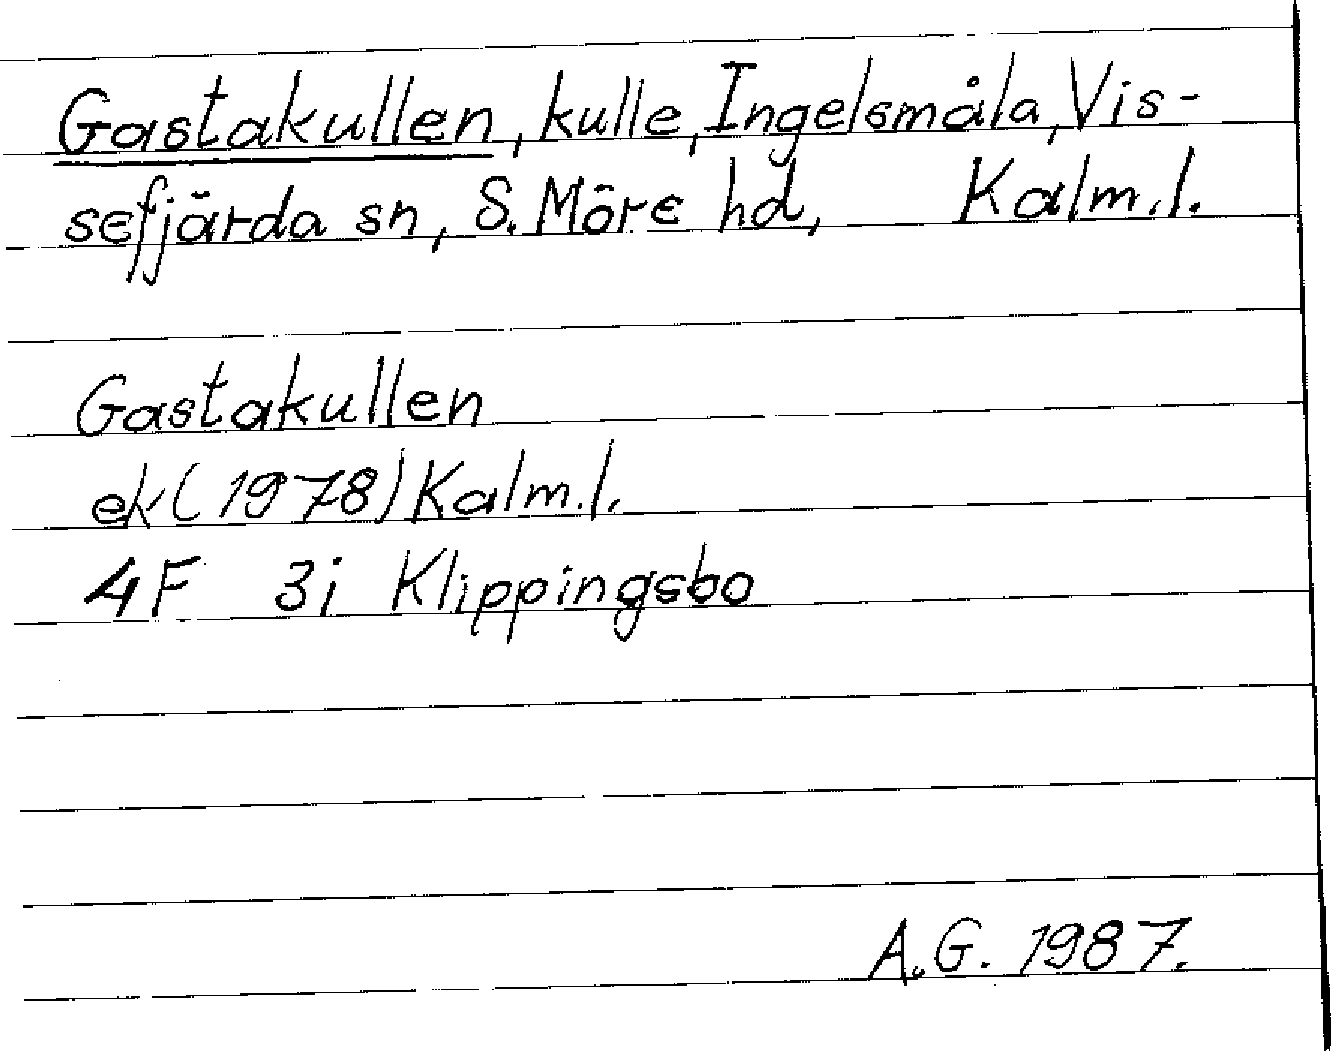 Gastakullen, kulle, Ingelsmåla, Vis-
sefjärda sn, S. Möre hd, Kalm.l.
Gastakullen
ek (1978) Kalm.l.
4F 3i Klippingsbo
A.G. 1987.